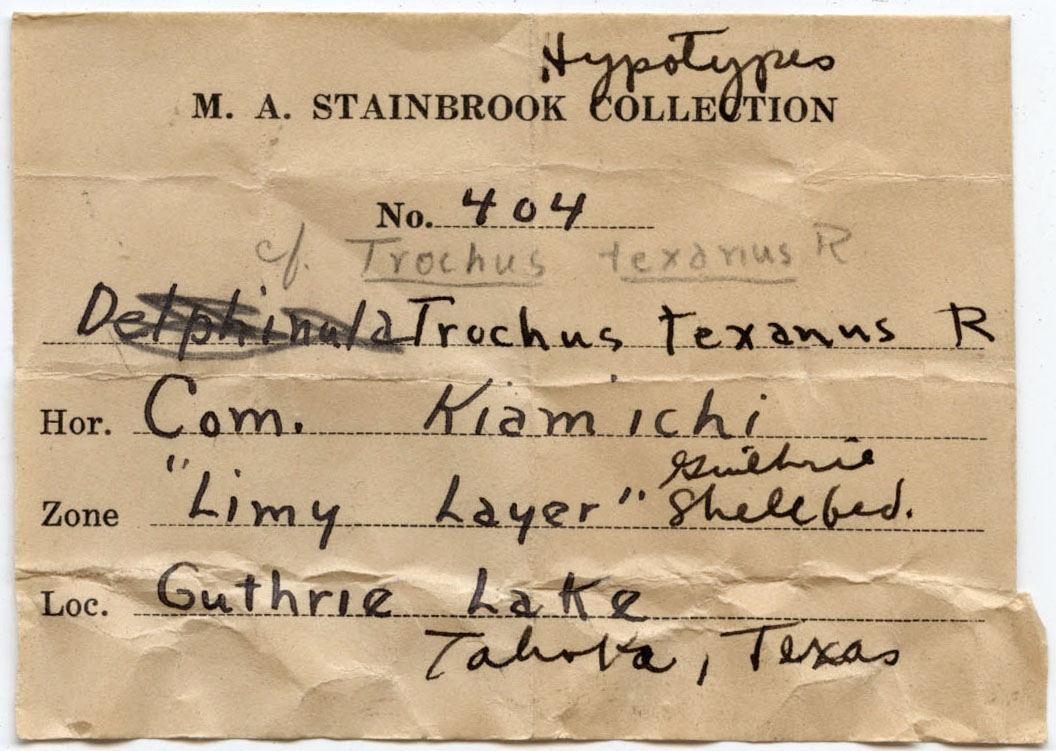 Hypotypes
M. A. STAINBROOK COLLECTION
No. 404
cf. Trochus texanus R
Delphinula Trochus texanus R
Hor. Com. Kiamichi
Guthrie
Zone "Limy Layer" Shellbed.
Loc. Guthrie Lake
Tahoka, Texas